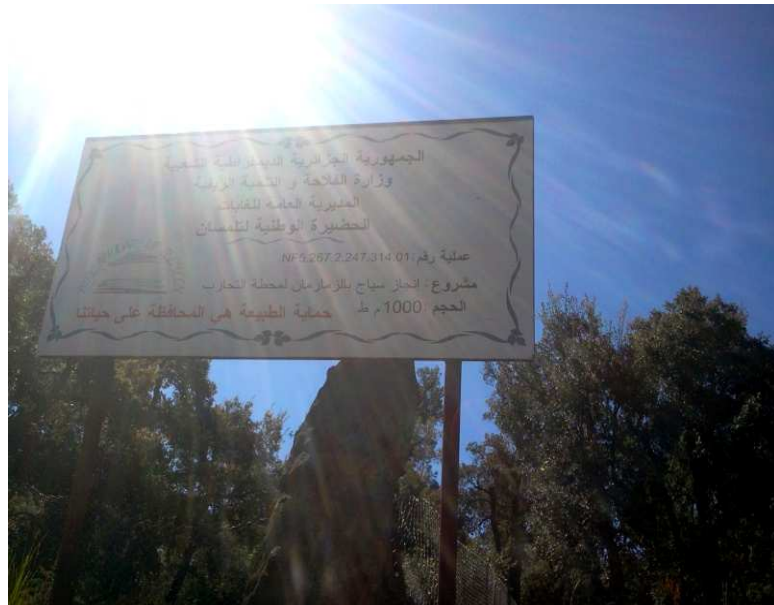 الجمهورية الجزائرية الديمقراطية الشعبية
وزارة الفلاحة و التنمية الريفية
المديرية العامة للغابات
الحضيرة الوطنية لتلمسان
عملية رقم: NF5.267.2.247.314.01
مشروع : انجاز سياج بالزمازمان لمحطة التجارب
الحجم : 1000 م ط
حماية الطبيعة هي المحافظة على حياتنا